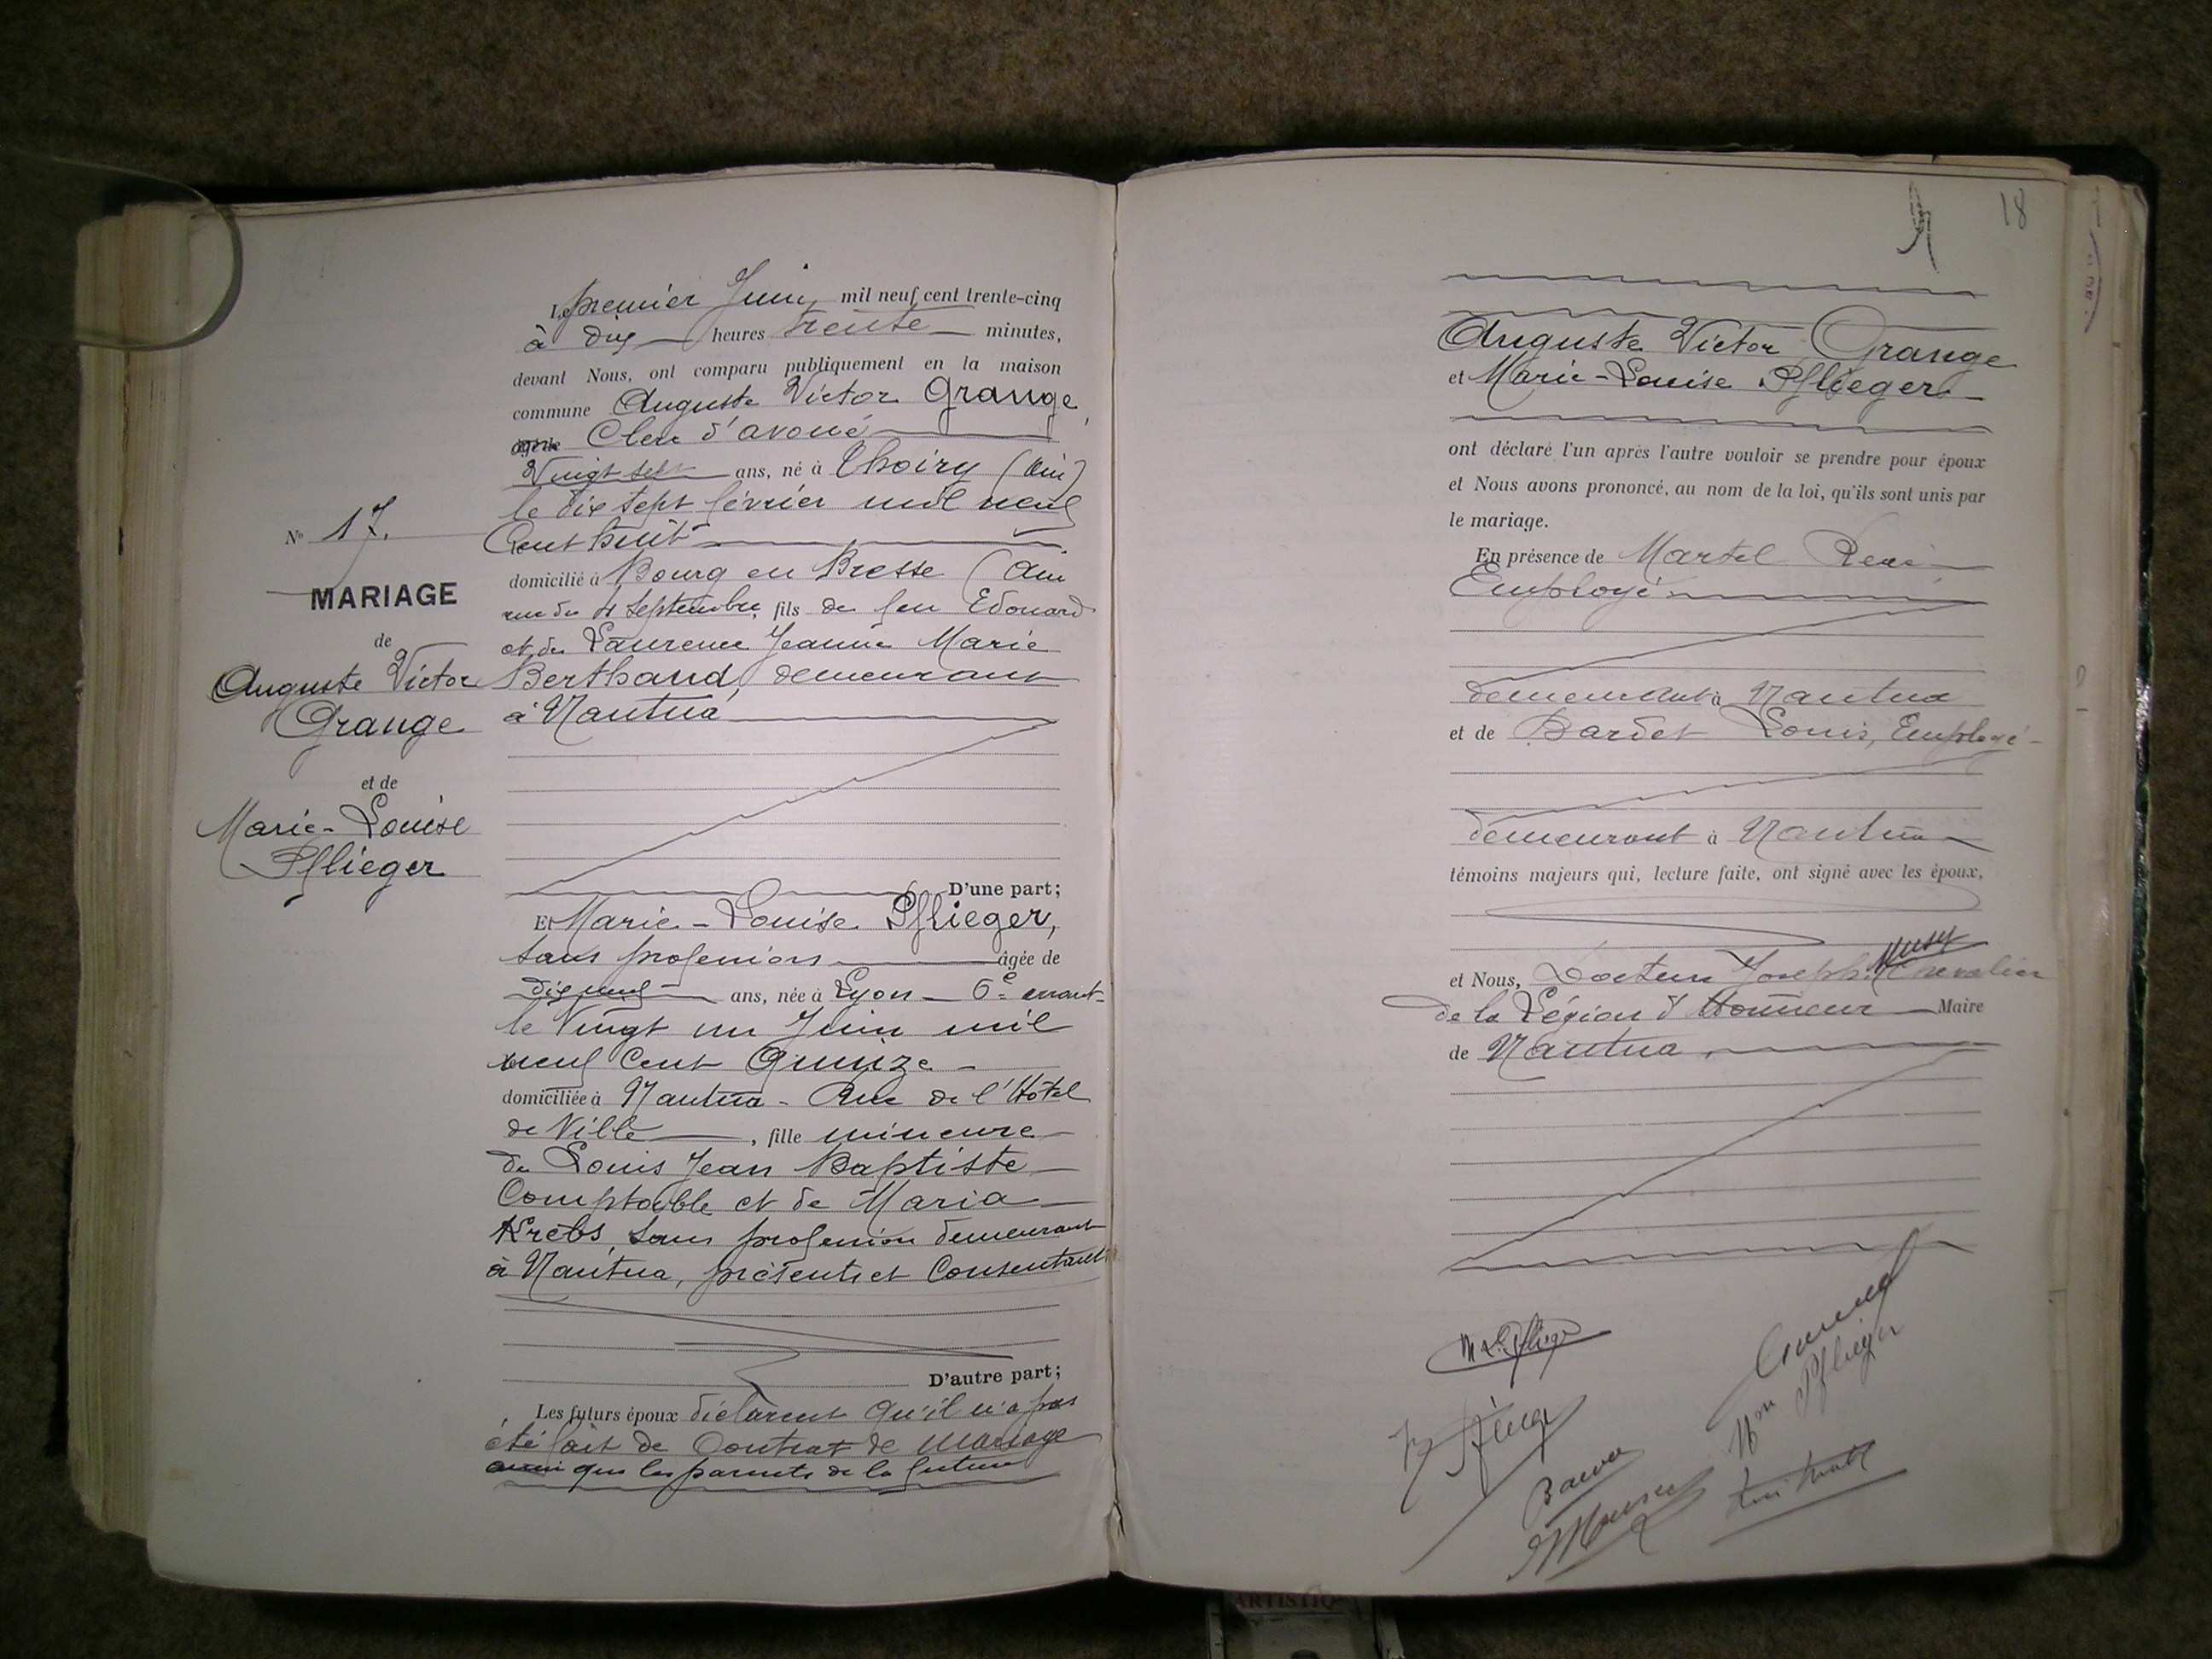 Le premier Juin mil neuf cent trente-cinq
à dix heures trente minutes,
devant Nous, ont comparu publiquement en la maison
commune Auguste Victor Grange,
Clerc d'avoué
Vingt sept ans, né à Thoiry (Ain)
le dix sept février mil neuf
Cent huit
domicilié à Bourg en Bresse (Ain
rue du 4 Septembre, fils de feu Edouard
et de Laurence Jeanne Marie
Berthaud, demeurant
à Nantua
D'une part;
Et Marie-Louise Pflieger,
sans profession âgée de
dix neuf ans, née à Lyon - 6e arront-
le Vingt un Juin mil
neuf Cent Quinze -
domiciliée à Nantua - Rue de l'Hôtel
de Ville, fille mineure
de Louis Jean Baptiste
Comptable et de Maria
Krebs, sans profession demeurant
à Nantua, présents et Consentants
D'autre part;
Les futurs époux déclarent qu'il n'a pas
été fait de Contrat de mariage
ainsi que les parents de la future
No 17.
MARIAGE
de
Auguste Victor
Grange
et de
Marie-Louise
Pflieger
18
Auguste Victor Grange
et Marie-Louise Pflieger
ont déclaré l'un après l'autre vouloir se prendre pour époux
et Nous avons prononcé, au nom de la loi, qu'ils sont unis par
le mariage.
En présence de Martel René
Employé
demeurant à Nantua
et de Bardet Louis, Employé
demeurant à Nantua
témoins majeurs qui, lecture faite, ont signé avec les époux,
et Nous, Docteur Joseph Musy Chevalier
de la Légion d'Honneur Maire
de Nantua
M L Pflieger
Pflieger
Mon Pflieger
ARTISTIQ